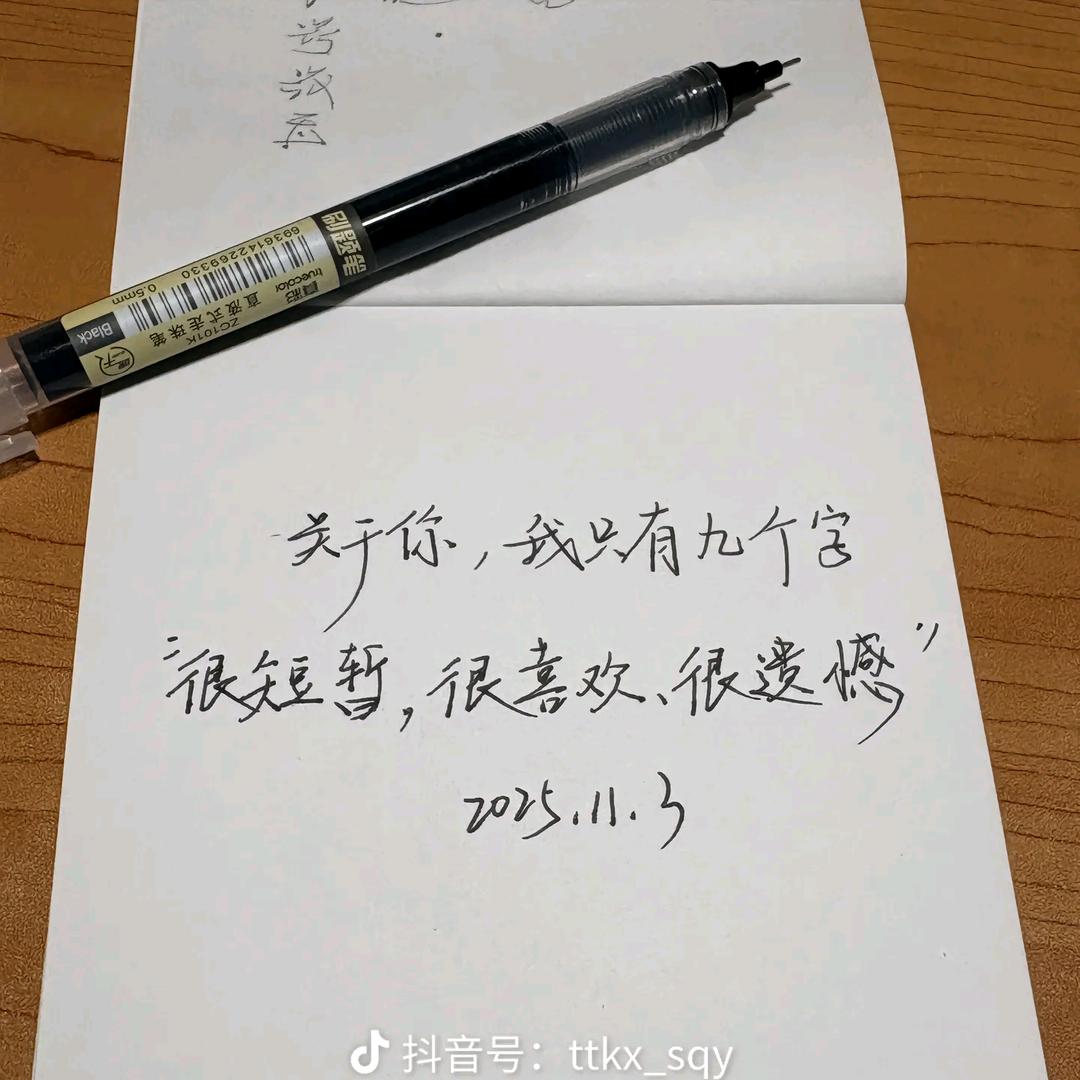 刷题笔
6936142269330
truecolor
真彩
直液式走珠笔
ZC101K
0.5mm
Black
关于你，我只有九个字
“很短暂，很喜欢、很遗憾”
2025.11.3
抖音号：ttkx_sqy